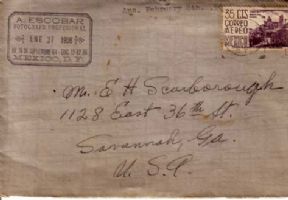 Ans. February 6th.
A. ESCOBAR
FOTOGRAFO PROFESIONAL
ENE 31 1956
MEXICO, D. F.
35 CTS
CORREO
AEREO
MEXICO
Mr. E H Scarborough
1128 East 36th St.
Savannah, Ga.
U. S. A.